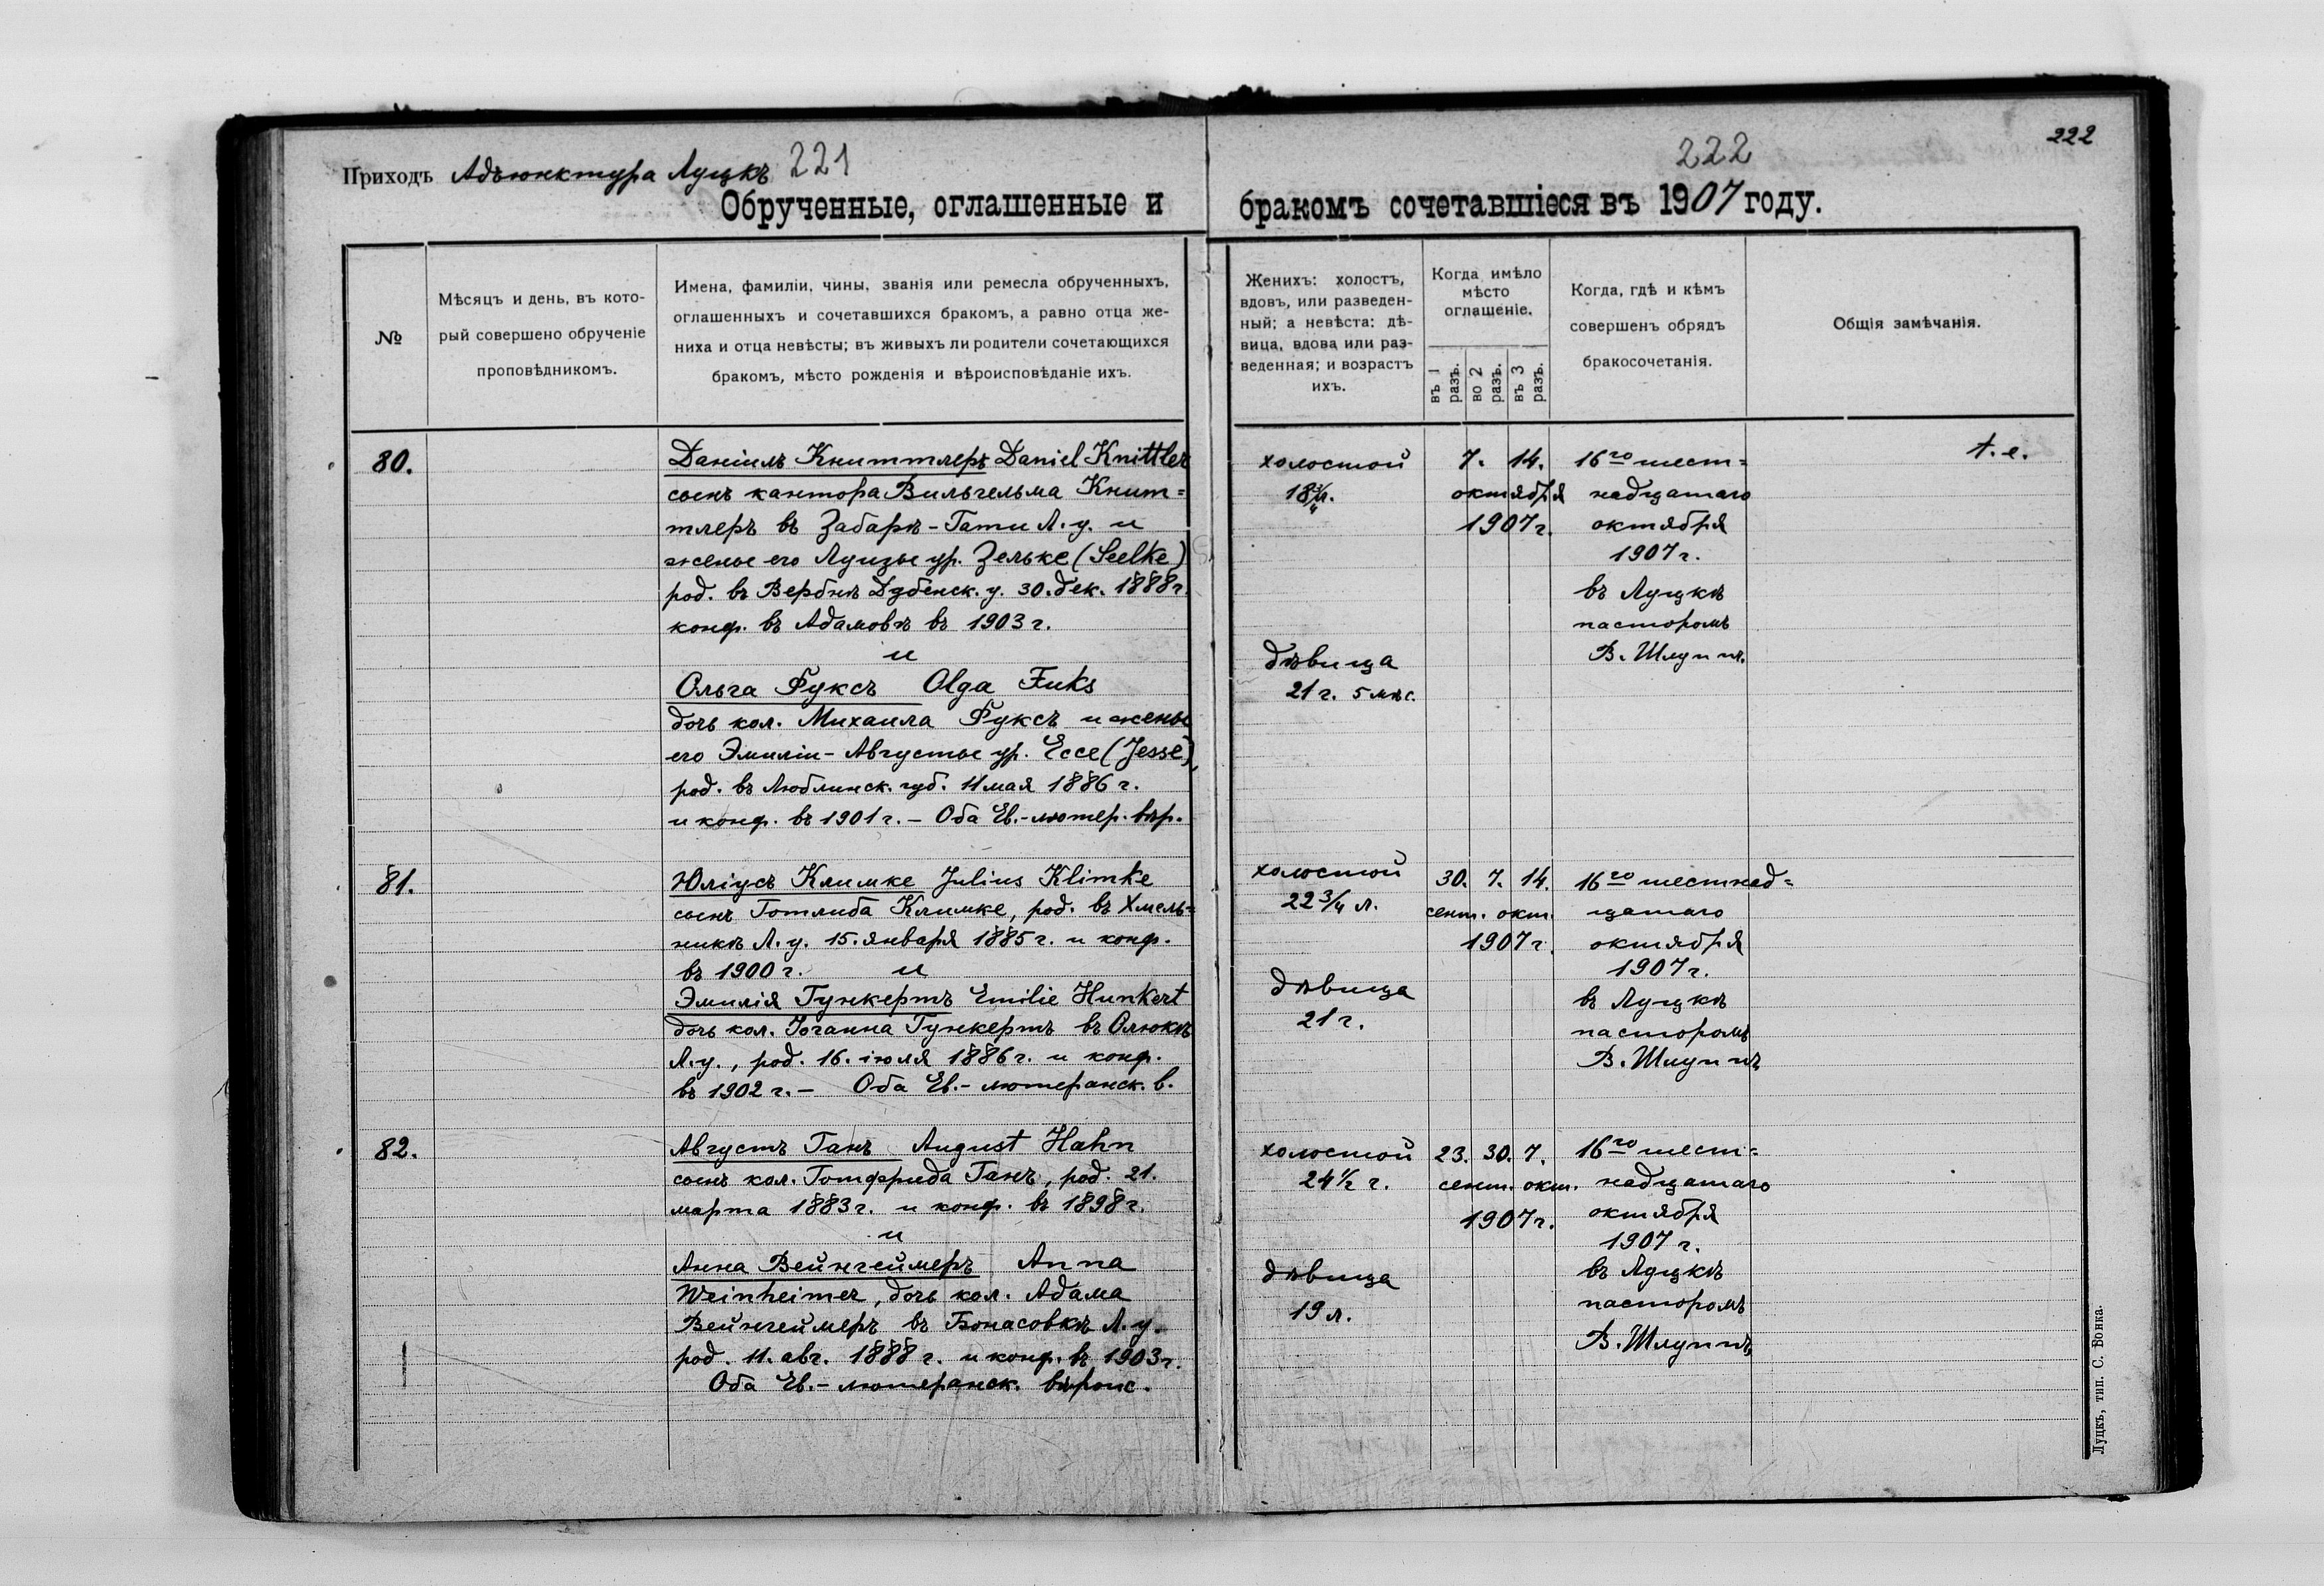 Приходъ Адъюнктура Луцкъ 221
Обрученные, оглашенные и
№
Мѣсяцъ и день, въ кото-
рый совершено обрученіе
проповѣдникомъ.
Имена, фамиліи, чины, званія или ремесла обрученныхъ,
оглашенныхъ и сочетавшихся бракомъ, а равно отца же-
ниха и отца невѣсты; въ живыхъ ли родители сочетающихся
бракомъ, мѣсто рожденія и вѣроисповѣданіе ихъ.
80.
Даніилъ Книттлеръ Daniel Knittler
сынъ кантора Вильгельма Книт=
тлеръ въ Забара-Гати Л. у. и
жены его Луизы ур. Зельке (Seelke)
род. въ Вербѣ Дубенск. у. 30. дек. 1888 г.
конф. въ Адамовѣ въ 1903 г.
и
Ольга Фуксъ Olga Fuks
дочь кол. Михаила Фуксъ и жены
его Эмиліи-Августы ур. Ессе (Jesse),
род. въ Люблинск. губ. 11 мая 1886 г.
и конф. въ 1901 г. – Оба Ев.-лютер. вѣр.
81.
Юліусъ Климке Julius Klimke
сынъ Готлиба Климке, род. въ Хмель=
никѣ Л. у. 15. января 1885 г. и конф.
въ 1900 г. и
Эмилія Гункертъ Emilie Hunkert
дочь кол. Іоганна Гункертъ въ Олюкѣ
Л. у., род. 16. іюля 1886 г. и конф.
въ 1902 г. – Оба Ев.-лютеранск. в.
82.
Августъ Ганъ August Hahn
сынъ кол. Готфрида Ганъ, род. 21.
марта 1883 г. и конф. въ 1898 г.
и
Анна Вейнгеймеръ Anna
Weinheimer, дочь кол. Адама
Вейнгеймеръ въ Бонасовкѣ Л. у.
род. 11. авг. 1888 г. и конф. въ 1903 г.
Оба Ев.-лютеранск. вѣроис.
222
222
бракомъ сочетавшіеся въ 1907 году.
Женихъ: холостъ,
вдовъ, или разведен-
ный; а невѣста: дѣ-
вица, вдова или раз-
веденная; и возрастъ
ихъ.
Когда имѣло
мѣсто
оглашеніе.
въ 1 разъ.
во 2 разъ.
въ 3 разъ.
Когда, гдѣ и кѣмъ
совершенъ обрядъ
бракосочетанія.
Общія замѣчанія.
холостой
18 3/4 л.
дѣвица
21 г. 5 мѣс.
7. 14.
октября
1907 г.
16го шест=
надцатаго
октября
1907 г.
въ Луцкѣ
пасторомъ
В. Шлуппъ.
t. e.
холостой
22 3/4 л.
дѣвица
21 г.
30. 7. 14.
сент. окт.
1907 г.
16го шестнад=
цатаго
октября
1907 г.
въ Луцкѣ
пасторомъ
В. Шлуппъ
холостой
24 1/2 г.
дѣвица
19 л.
23. 30. 7.
сент. окт.
1907 г.
16го шест=
надцатаго
октября
1907 г.
въ Луцкѣ
пасторомъ
В. Шлуппъ
Луцкъ, тип. С. Бонка.